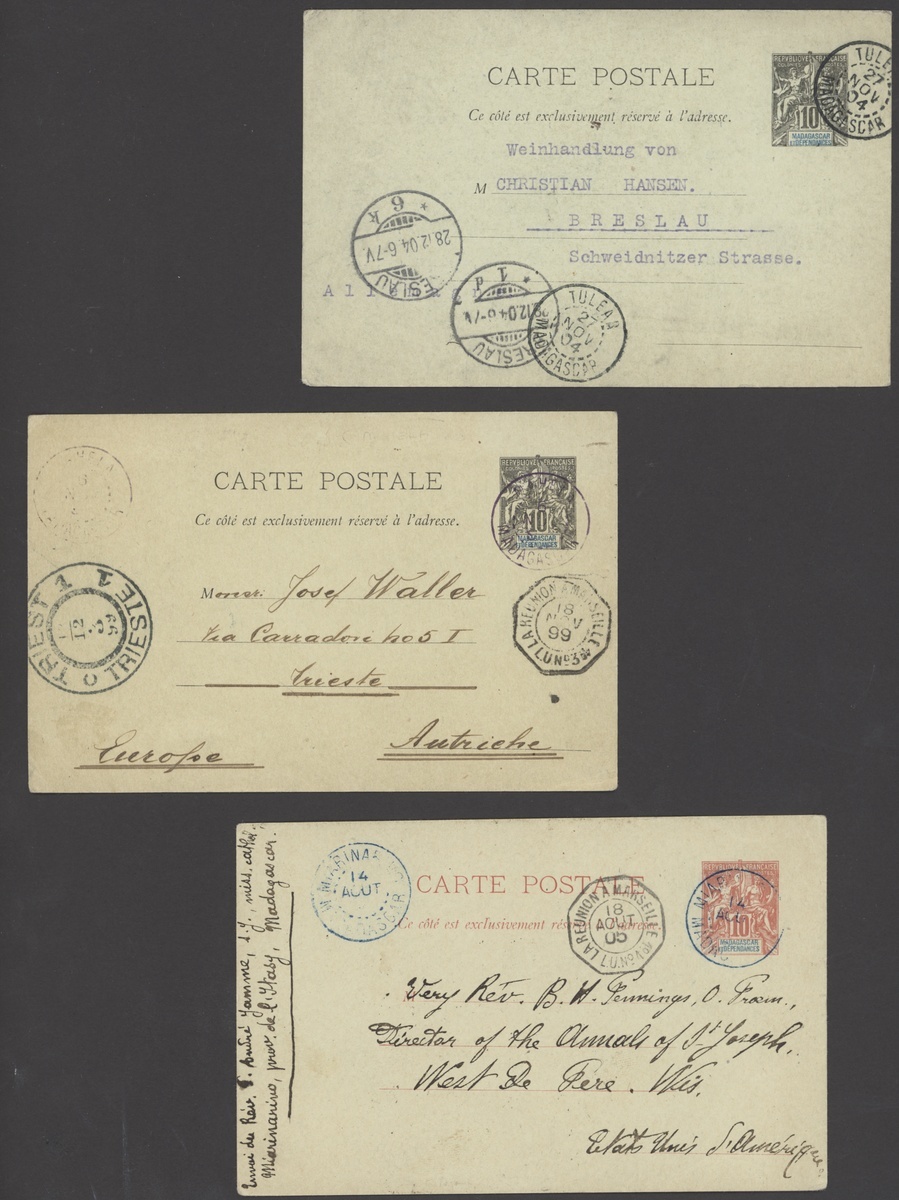 CARTE POSTALE
Ce côté est exclusivement réservé à l'adresse.
REPUBLIQUE FRANÇAISE
COLONIES POSTES
10
MADAGASCAR
ET DÉPENDANCES
TULEAR
27
NOV
04
MADAGASCAR
Weinhandlung von
M CHRISTIAN HANSEN.
BRESLAU
Schweidnitzer Strasse.
BRESLAU
28.12.04 6-7V.
* 6 k
BRESLAU
.12.04 6-7V
* 1 d
TULEAR
27
NOV
04
MADAGASCAR
CARTE POSTALE
Ce côté est exclusivement réservé à l'adresse.
REPUBLIQUE FRANÇAISE
COLONIES POSTES
10
MADAGASCAR
ET DÉPENDANCES
MADAGASCAR
Josef Waller
Via Carradori No 5 I
Trieste
Europe
Autriche
LA REUNION A MARSEILLE
18
NOV
99
L.U. No 3
TRIESTE 1
TRIEST 1
12
99
CARTE POSTALE
Ce côté est exclusivement réservé à l'adresse
REPUBLIQUE FRANÇAISE
10
MADAGASCAR
ET DÉPENDANCES
14
AOUT
LA REUNION A MARSEILLE
18
AOUT
05
L.U. No 4
Very Rév. B. H. Pennings, O. Praem.,
Director of the Annals of St Joseph,
West De Pere. Wis.
Etats Unis d'Amérique
Envoi du Rév. P. André Jamme, s.j., miss. cathol.,
Miarinarivo, prov. de l'Itasy, Madagascar.